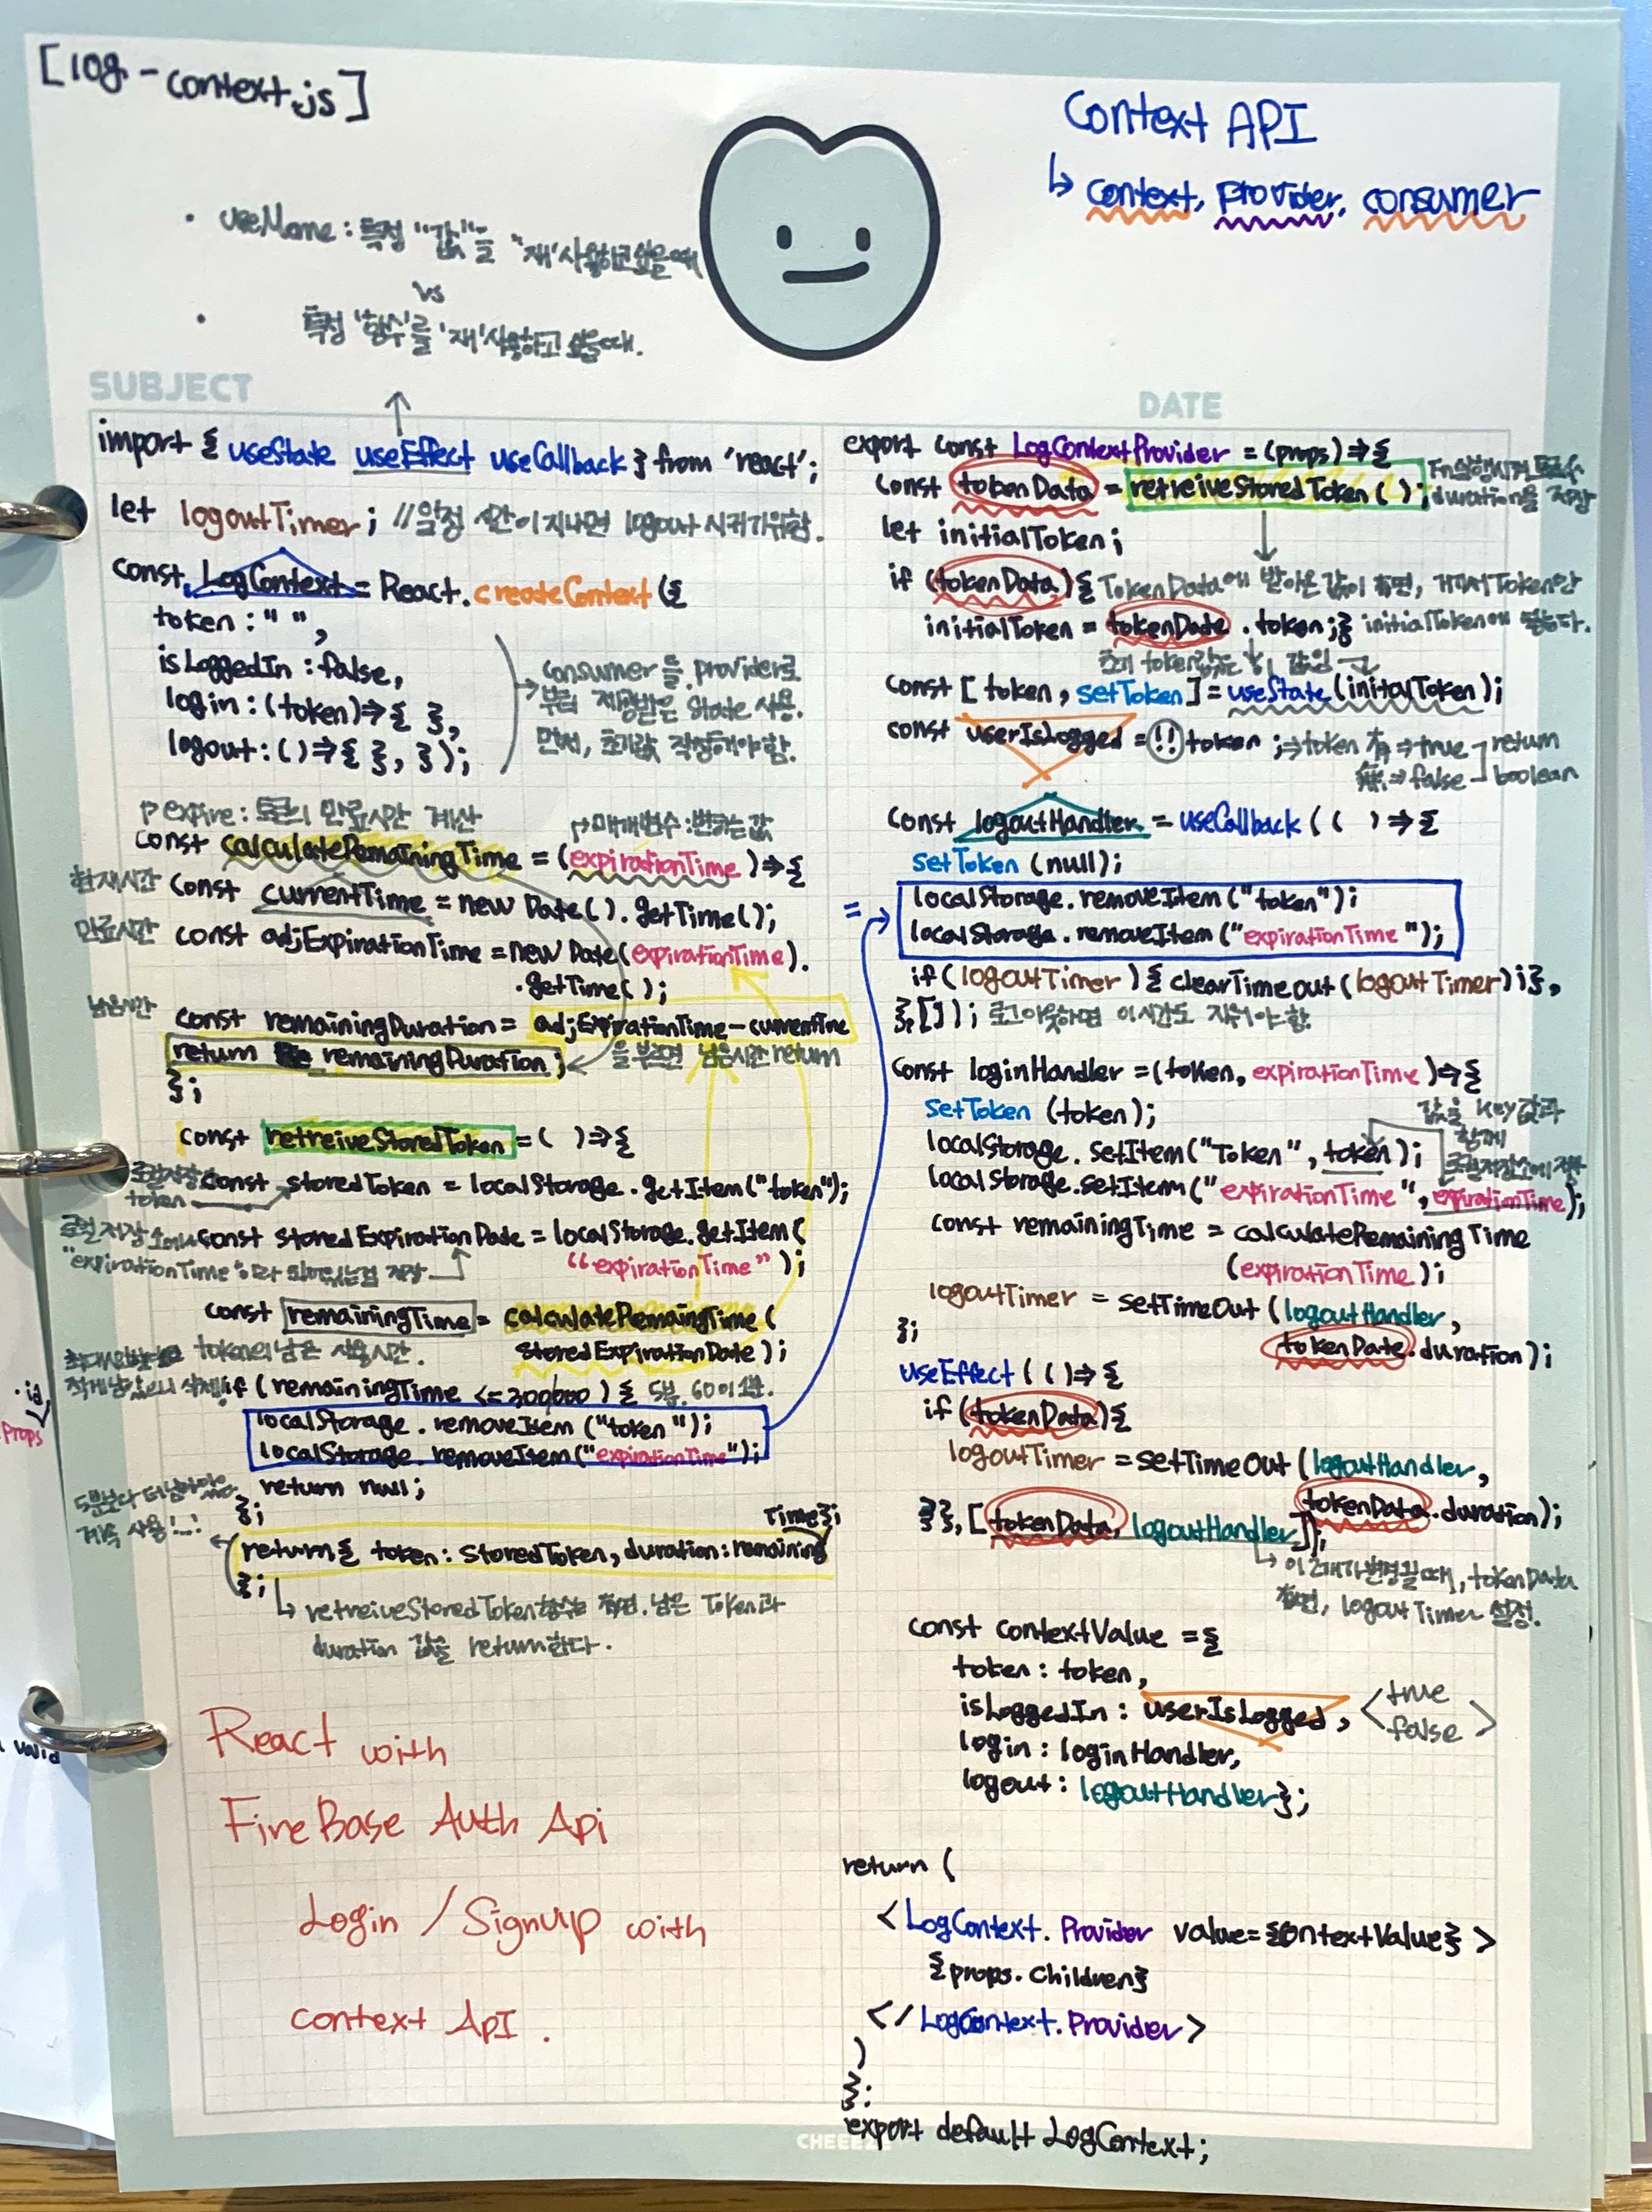 [log-context.js]
Context API
↳ context, provider, consumer
• useMemo : 특정 "값"을 "재"사용하고싶을때
vs
• 특정 '함수'를 '재'사용하고 싶을때.
SUBJECT
import { useState useEffect useCallback } from 'react';
let logoutTimer; //일정 시간이 지나면 logout 시키기위함.
const LogContext = React.createContext({
token : " ",
isLoggedIn : false,
login : (token)=>{ },
logout : ( )=>{ }, });
consumer들 provider로
부터 제공받은 state 사용.
먼저, 초기값 작성해야함.
expire : 토큰의 만료시간 계산
↱매개변수 : 변하는값
const calculateRemainingTime = (expirationTime)=>{
현재시간 const currentTime = new Date( ).getTime( );
만료시간 const adjExpirationTime = new Date(expirationTime).
.getTime( );
남은시간
const remainingDuration = adjExpirationTime-currentTime
return remainingDuration;
을 부르면 남은시간 return
};
const retreiveStoredToken = ( )=>{
token
const storedToken = localStorage.getItem("token");
const storedExpirationDate = localStorage.getItem(
"expirationTime" );
로컬저장소에서
"expirationTime"
const remainingTime = calculateRemaingTime(
storedExpirationDate );
token의 남은 사용시간.
if (remainingTime <= 300000 ) { 5분. 60이 1분.
localStorage.removeItem ("token");
localStorage.removeItem("expirationTime");
return null;
};
5분보다 더 남아있음
계속 사용!...!
return{ token : storedToken, duration : remaining
Time};
};
↳ retreiveStoredToken함수는 남은 Token과
duration 값을 return한다.
React with
FireBase Auth Api
Login / SignUp with
context ApI .
DATE
export const LogContextProvider = (props)=>{
const tokenData = retreiveStoredToken ( );
duration을 저장
let initialToken;
if (tokenData){ TokenData에 받아온 값이 有면, 거기서 Token만
initialToken = tokenDate.token;} initialToken에 넣는다.
const [token, setToken] = useState(initalToken);
const userIsLogged = !!token ; ⇒token 有 ⇒true
無 ⇒ false
return
boolean
const logoutHandler = useCallback (( )=>{
setToken (null);
= localStorage.removeItem("token");
localStorage.removeItem("expirationTime");
if(logoutTimer){ clearTimeout(logoutTimer)i},
},[]); 로그아웃하면 이시간도 지워야함.
const loginHandler = (token, expirationTime)=>{
setToken (token);
값을 key값과
함께
localStorage.setItem("Token", token);
localStorage.setItem("expirationTime", expirationTime);
const remainingTime = calculateRemainingTime
(expirationTime);
logoutTimer = setTimeOut (logoutHandler,
tokenDate.duration);
};
useEffect (()=>{
if (tokenData){
logoutTimer = setTimeOut (logoutHandler,
tokenData.duration);
}},[tokenData, logoutHandler]);
↳ 이 2개가 변경될때, tokenData
有면, logout Timer 설정.
const contextValue = {
token : token,
isLoggedIn : userIsLogged,
true
false
login : loginHandler,
logout : logoutHandler};
return (
<LogContext.Provider value={contextValue} >
{props.children}
</LogContext.Provider>
)
};
export default LogContext;
CHEEEZE
.id
Props
valid